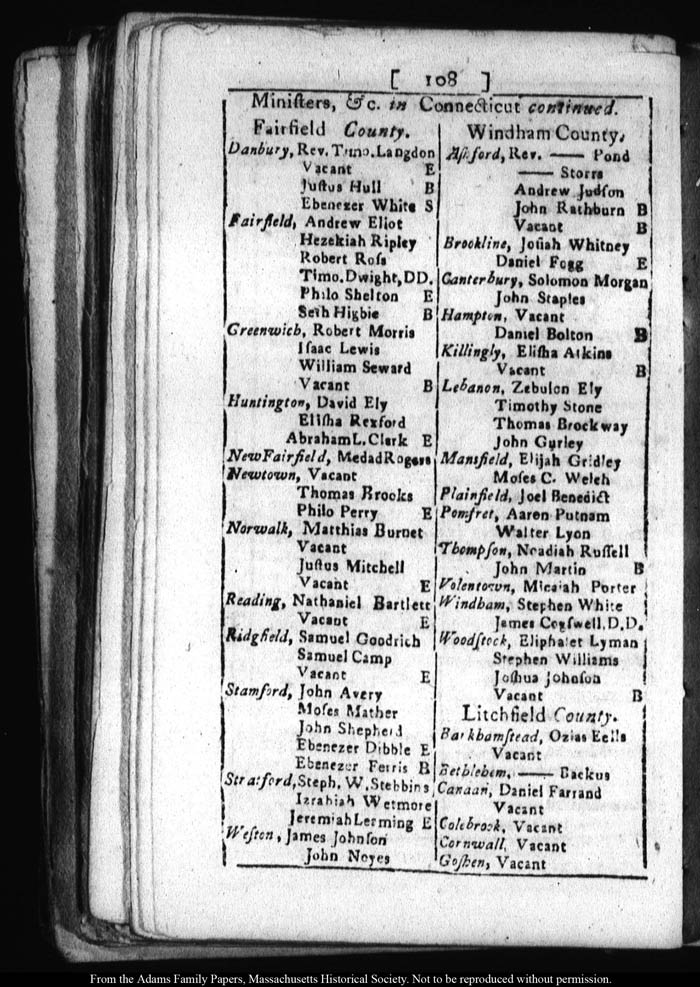 [ 108 ]
Miniſters, &c. in Connecticut continued.
Fairfield County.
Danbury, Rev. Timo. Langdon
Vacant E
Juſtus Hull B
Ebenezer White S
Fairfield, Andrew Eliot
Hezekiah Ripley
Robert Roſs
Timo. Dwight, DD.
Philo Shelton E
Seth Higbie B
Greenwich, Robert Morris
Iſaac Lewis
William Seward
Vacant B
Huntington, David Ely
Eliſha Rexford
Abraham L. Clark E
New Fairfield, Medad Rogers
Newtown, Vacant
Thomas Brooks
Philo Perry E
Norwalk, Matthias Burnet
Vacant
Juſtus Mitchell
Vacant E
Reading, Nathaniel Bartlett
Vacant E
Ridgfield, Samuel Goodrich
Samuel Camp
Vacant E
Stamford, John Avery
Moſes Mather
John Shepherd
Ebenezer Dibble E
Ebenezer Ferris B
Stratford, Steph. W. Stebbins
Izrahiah Wetmore
Jeremiah Lerming E
Weſton, James Johnſon
John Noyes
Windham County.
Aſhford, Rev. —— Pond
—— Storrs
Andrew Judſon
John Rathburn B
Vacant B
Brookline, Joſiah Whitney
Daniel Fogg E
Canterbury, Solomon Morgan
John Staples
Hampton, Vacant
Daniel Bolton B
Killingly, Eliſha Atkins
Vacant B
Lebanon, Zebulon Ely
Timothy Stone
Thomas Brockway
John Gurley
Mansfield, Elijah Gridley
Moſes C. Welch
Plainfield, Joel Benedict
Pomfret, Aaron Putnam
Walter Lyon
Thompſon, Noadiah Ruſſell
John Martin B
Volentown, Micaiah Porter
Windham, Stephen White
James Cogſwell, D.D.
Woodſtock, Eliphalet Lyman
Stephen Williams
Joſhua Johnſon
Vacant B
Litchfield County.
Barkhamſtead, Ozias Eells
Vacant
Bethlehem, —— Backus
Canaan, Daniel Farrand
Vacant
Colebrook, Vacant
Cornwall, Vacant
Goſhen, Vacant
From the Adams Family Papers, Massachusetts Historical Society. Not to be reproduced without permission.